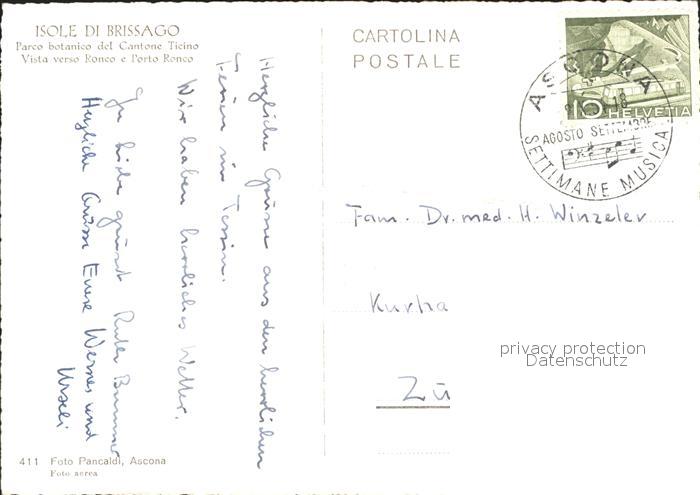 ISOLE DI BRISSAGO
Parco botanico del Cantone Ticino
Vista verso Ronco e Porto Ronco
CARTOLINA
POSTALE
ASCONA
-18
10 HELVETIA
AGOSTO SETTEMBRE
SETTIMANE MUSICA
Herzliche Grüsse aus den herrlichen
Ferien im Tessin.
Wir haben herrliches Wetter.
grüsst
Herzliche Grüsse Eure Werner und
Ursuli
Fam. Dr. med. H. Winzeler
Kurha
Zü
privacy protection
Datenschutz
411 Foto Pancaldi, Ascona
Foto aerea